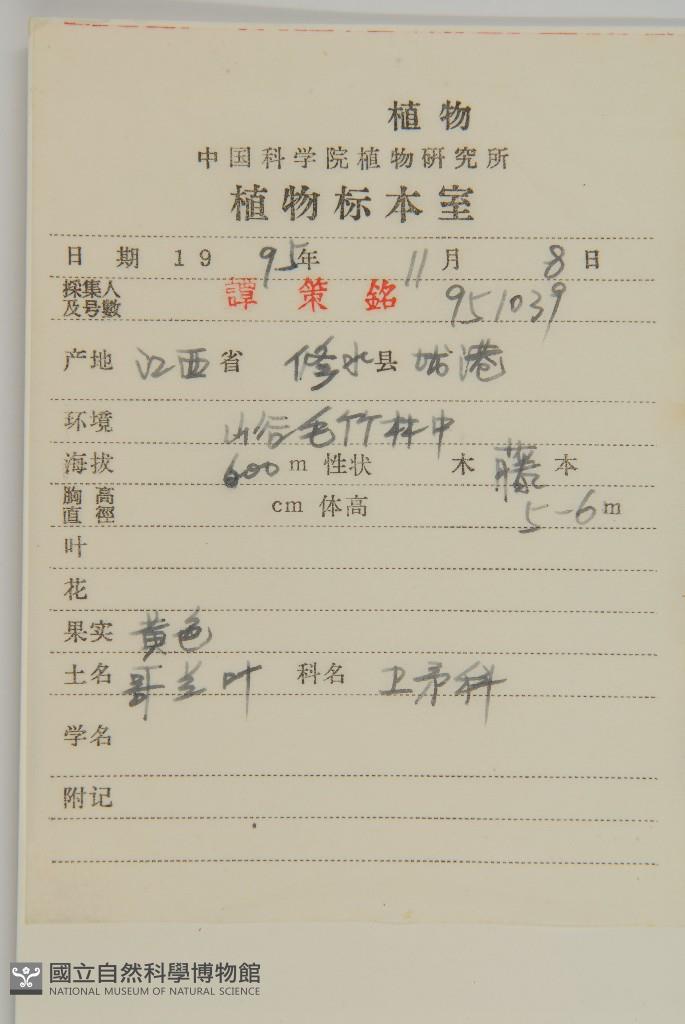 植物
中国科学院植物研究所
植物标本室
日期 19 95年 11月 8日
採集人及号數 譚策銘 951039
产地 江西省 修水县 港
环境 山谷毛竹林中
海拔 600 m 性状 木 藤 本
胸高直徑 cm 体高 5-6 m
叶
花
果实 黄色
土名 哥兰叶 科名 卫矛科
学名
附记
國立自然科學博物館
NATIONAL MUSEUM OF NATURAL SCIENCE